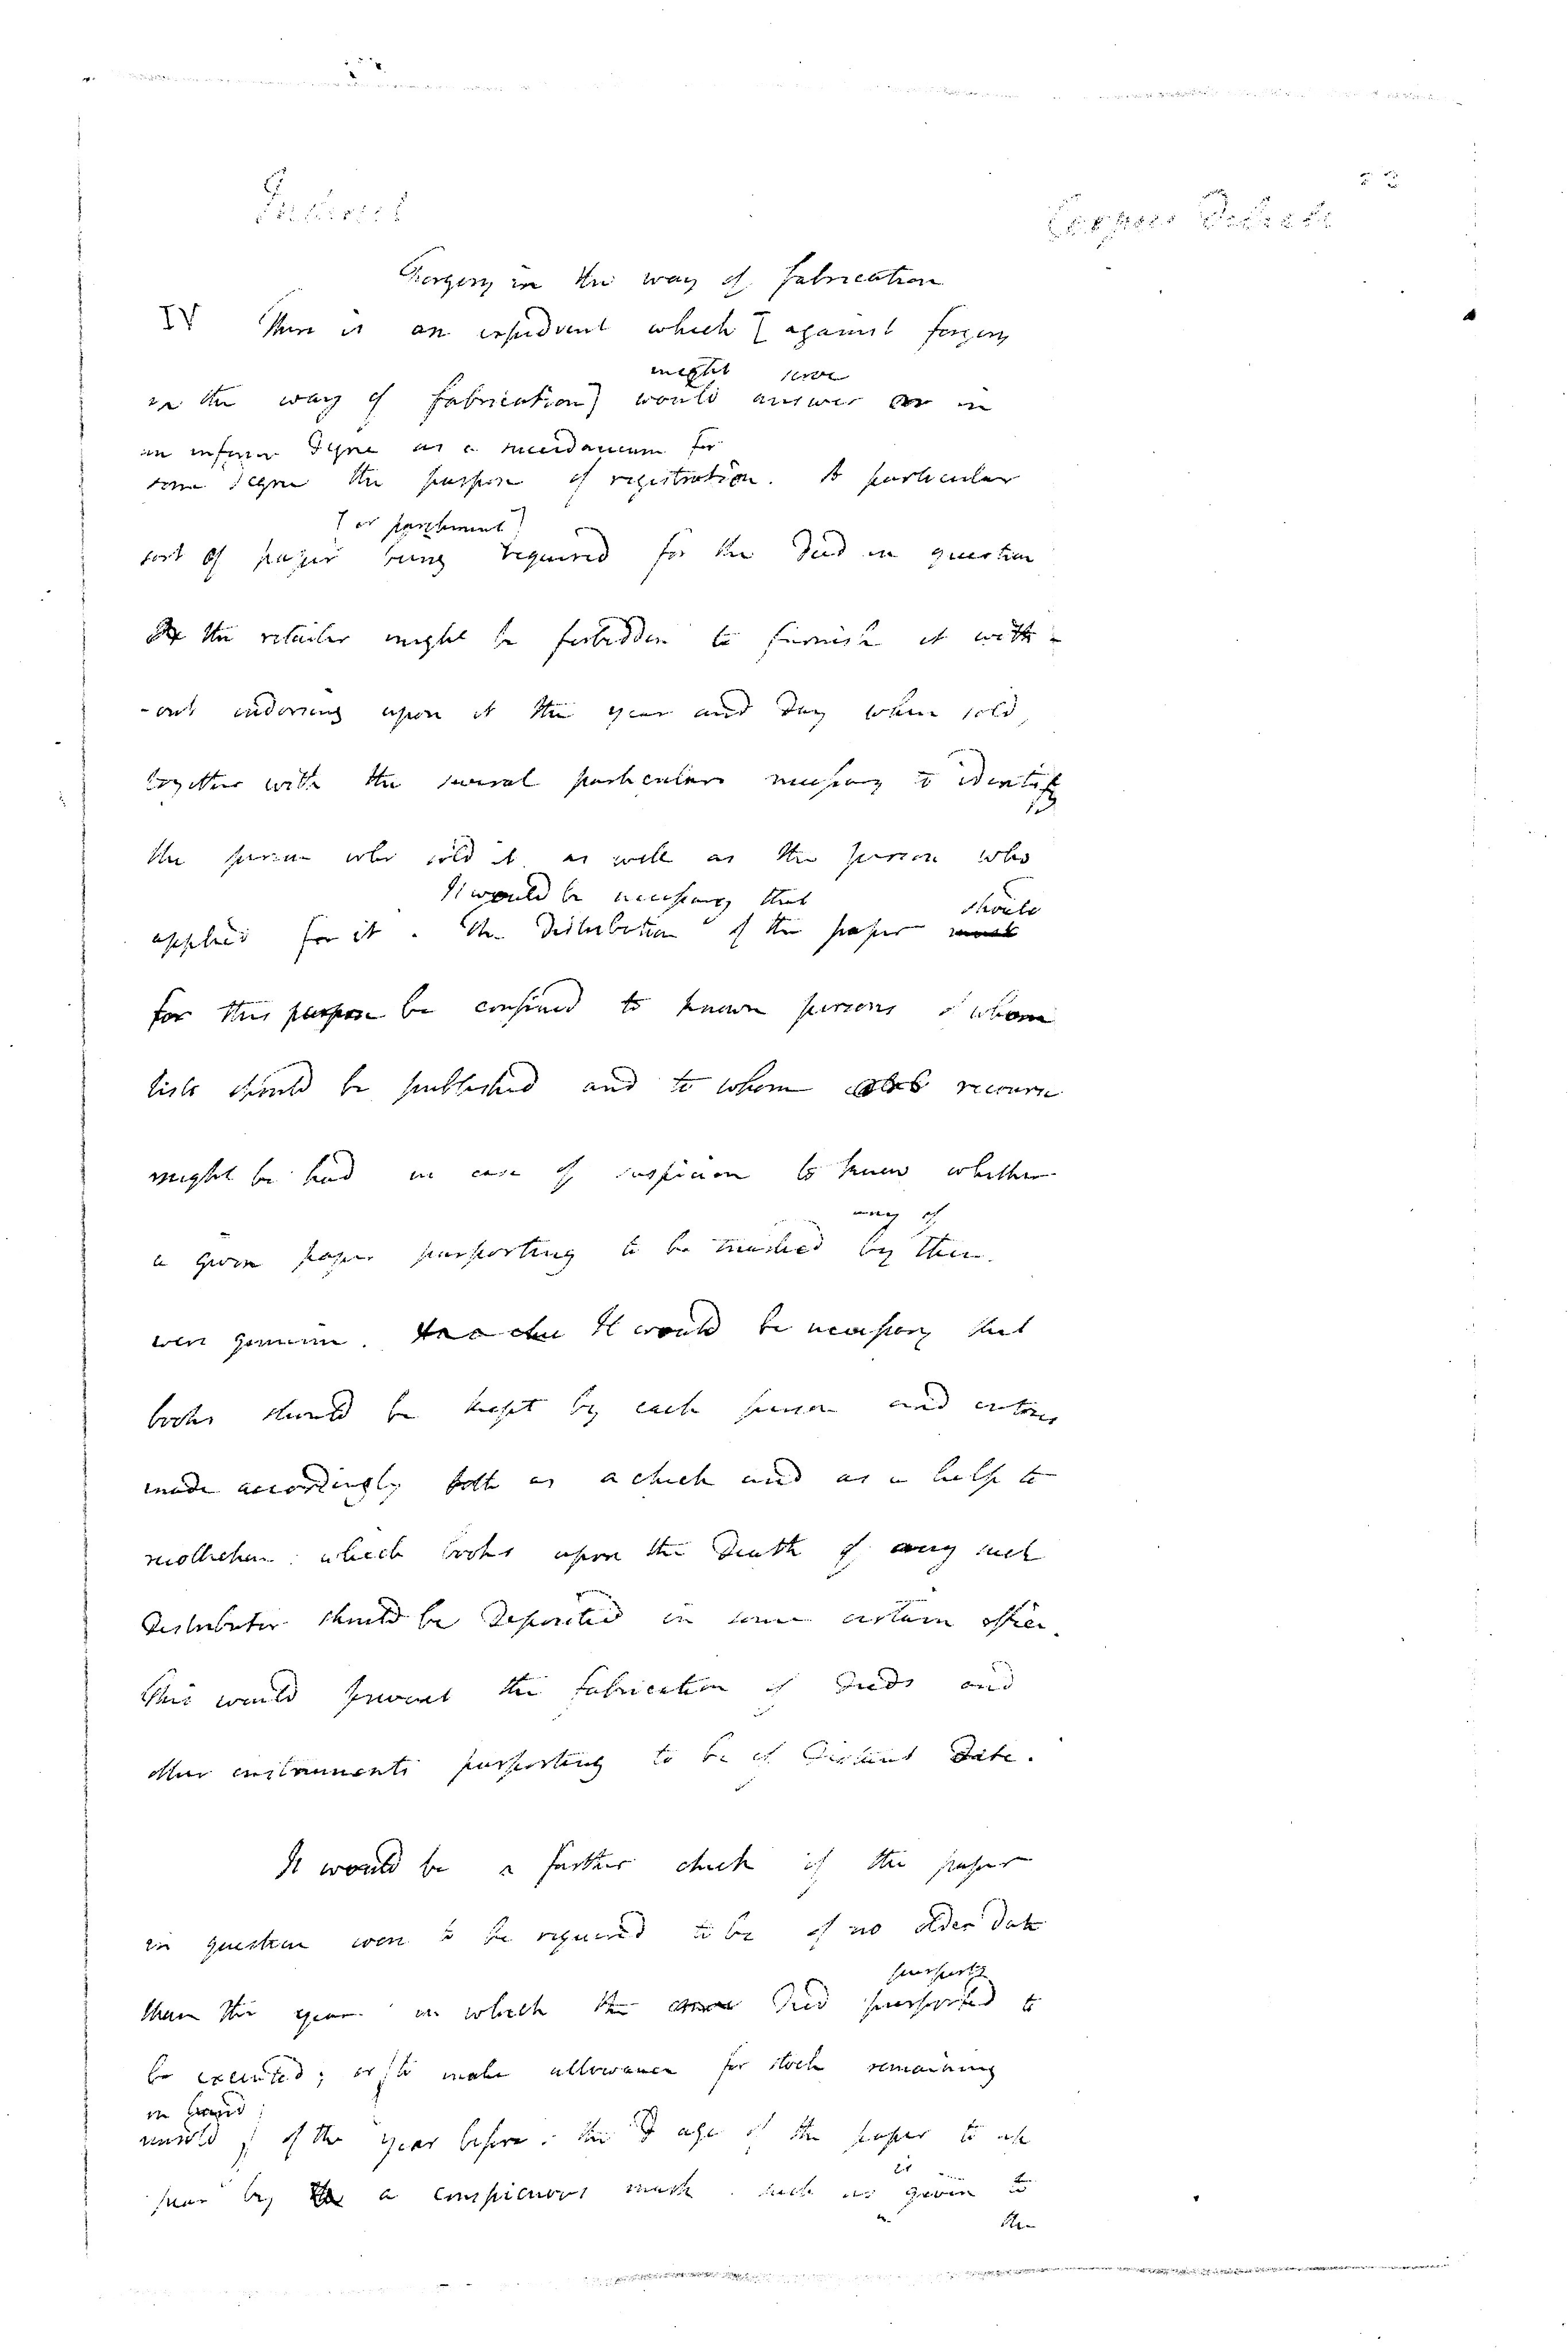 Indirect
Corpora Delicti
Forgery in the way of fabrication
IV There is an expedient which [ against forgery
might serve
in the way of fabrication] would answer or in
an inferior degree as a succedaneum for
some degree the purpose of registration. A particular
[or parchment]
sort of paper being required for the Deed in question
the retailer might be forbidden to furnish it with-
-out indorsing upon it the year and day when sold,
together with the several particulars necessary to identify
the person who sold it as well as the person who
It would be necessary that
should
applied for it. The distribution of the paper must
for this purpose be confined to known persons of whom
lists should be published and to whom recourse
might be had in case of suspicion to know whether
any of
a given paper purporting to be by them.
were genuine. It would be necessary that
books should be kept by each person and entries
made accordingly both as a check and as a help to
recollection: which books upon the Death of any such
Distributor should be Deposited in some certain office.
This would prevent the fabrication of Deeds and
other instruments purporting to be of distant Date.
It would be a further check if the paper
in question were to be required to be of no older Date
purports
than the year in which the Deed purported to
be executed; or [to make allowance for stock remaining
in hand
unsold] of the year before: the age of the paper to ap
pear by a conspicuous mark. such as is given to
the